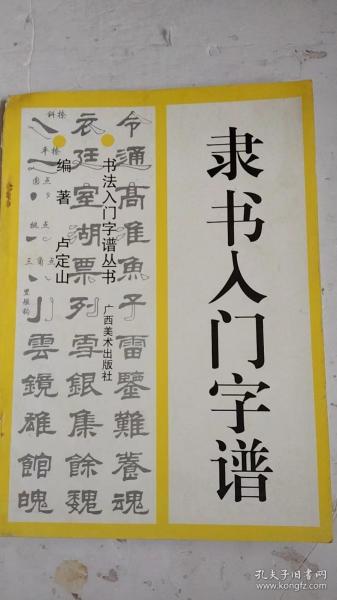 隶书入门字谱
书法入门字谱丛书
广西美术出版社
编著 卢定山
令通高淮鱼子雷鑒難養魂
衣廷室湖票列雪銀集餘魏
斜捺
平捺
圆点
挑点
三角点
雲鏡雄館魄
孔夫子旧书网